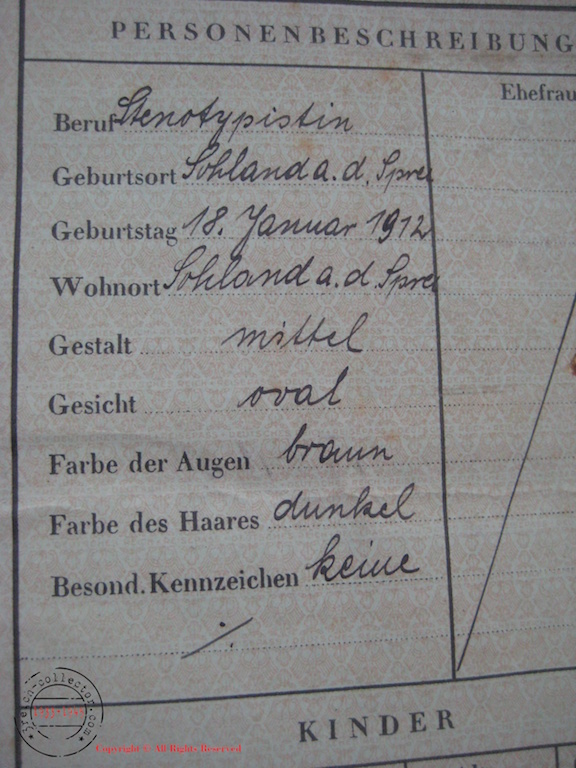 PERSONENBESCHREIBUNG
Ehefrau
Beruf Stenotypistin
Geburtsort Sohland a. d. Spree
Geburtstag 18. Januar 1912
Wohnort Sohland a. d. Spree
Gestalt mittel
Gesicht oval
Farbe der Augen braun
Farbe des Haares dunkel
Besond. Kennzeichen keine
./.
KINDER
Copyright © All Rights Reserved